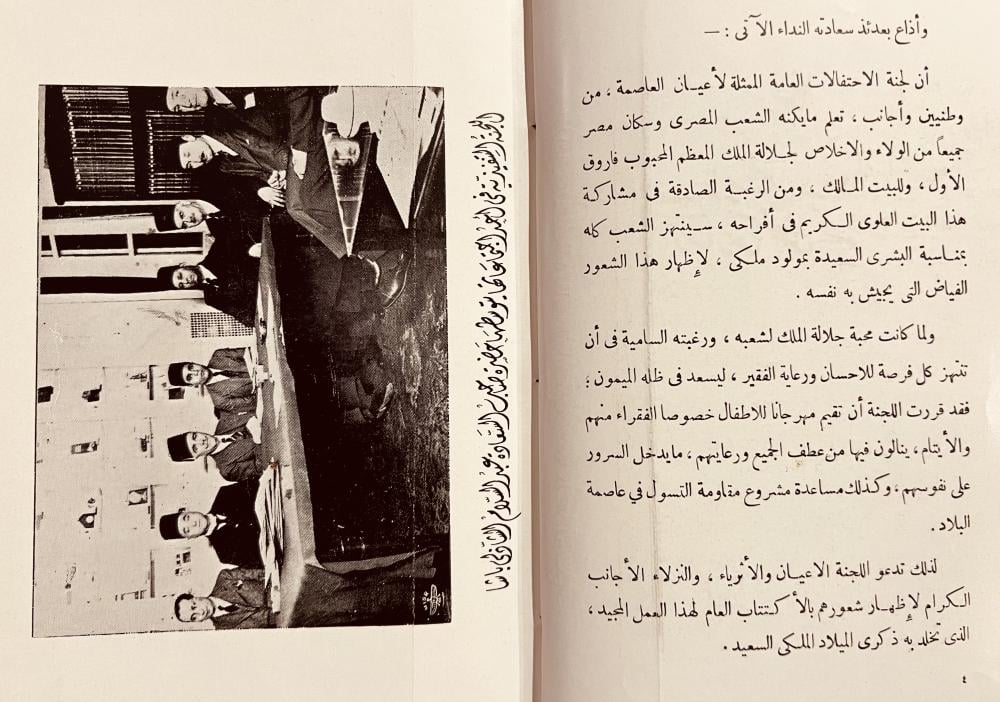 وأذاع بعدئذ سعادته النداء الآتى : —
أن لجنة الاحتفالات العامة الممثلة لأعيان العاصمة ، من
وطنيين وأجانب ، تعلم مايكنه الشعب المصرى وسكان مصر
جميعاً من الولاء والاخلاص لجلالة الملك المعظم المحبوب فاروق
الأول ، وللبيت المالك ، ومن الرغبة الصادقة فى مشاركة
هذا البيت العلوى الكريم فى أفراحه ، سينتهز الشعب كله
بمناسبة البشرى السعيدة بمولود ملكى ، لإظهار هذا الشعور
الفياض التى يجيش به نفسه .
ولما كانت محبة جلالة الملك لشعبه ، ورغبته السامية فى أن
تنتهز كل فرصة للاحسان ورعاية الفقير ، ليسعد فى ظله الميمون ؛
فقد قررت اللجنة أن تقيم مهرجانا للاطفال خصوصا الفقراء منهم
والأيتام ، ينالون فيها من عطف الجميع ورعايتهم ، مايدخل السرور
على نفوسهم ، وكذلك مساعدة مشروع مقاومة التسول فى عاصمة
البلاد .
لذلك تدعو اللجنة الاعيان والأثرياء ، والنزلاء الأجانب
الكرام لإظهار شعورهم بالأكتتاب العام لهذا العمل المجيد ،
الذى يخلد به ذكرى الميلاد الملكى السعيد .
٤
اللجنة التنفيذية فى احدى اجتماعاتها يتوسطها حضرة صاحب السعادة عبد السلام الشاذلى باشا